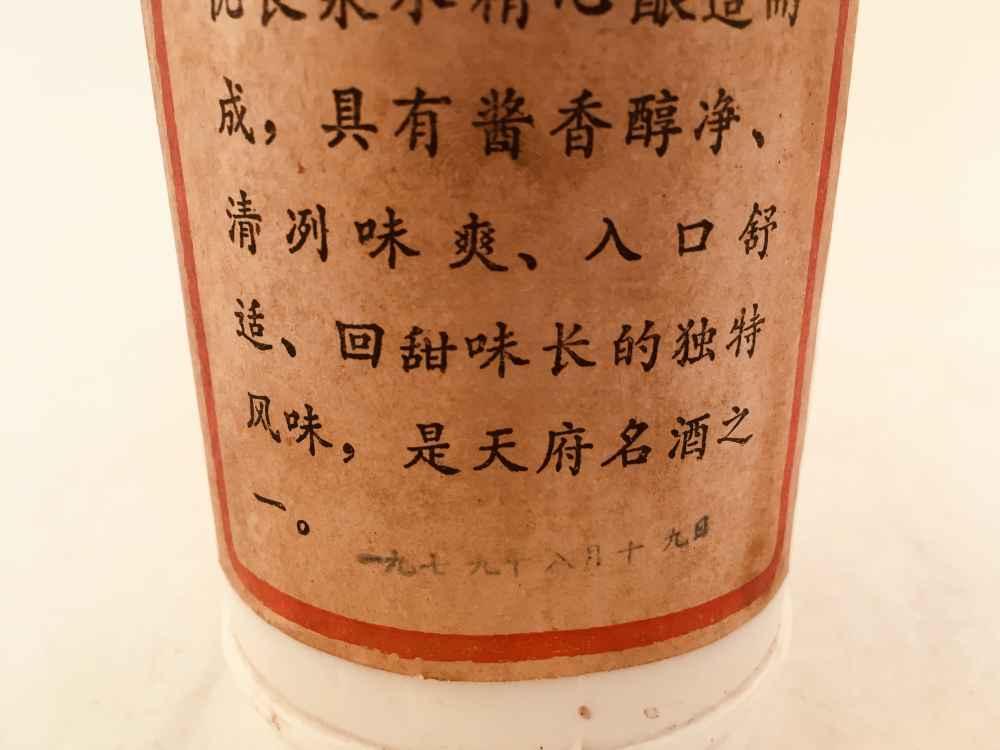 优良泉水精心酿造而
成，具有酱香醇净、
清冽味爽、入口舒
适、回甜味长的独特
风味，是天府名酒之
一。
一九七九年八月十九日